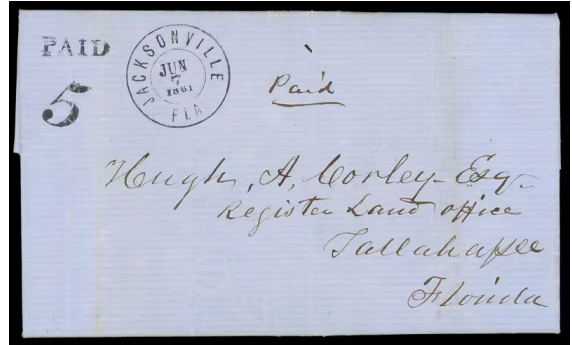 PAID
5
JACKSONVILLE
JUN
7
1861
FLA
Paid
Hugh, A, Corley Esq.
Register Land office
Tallahassee
Florida